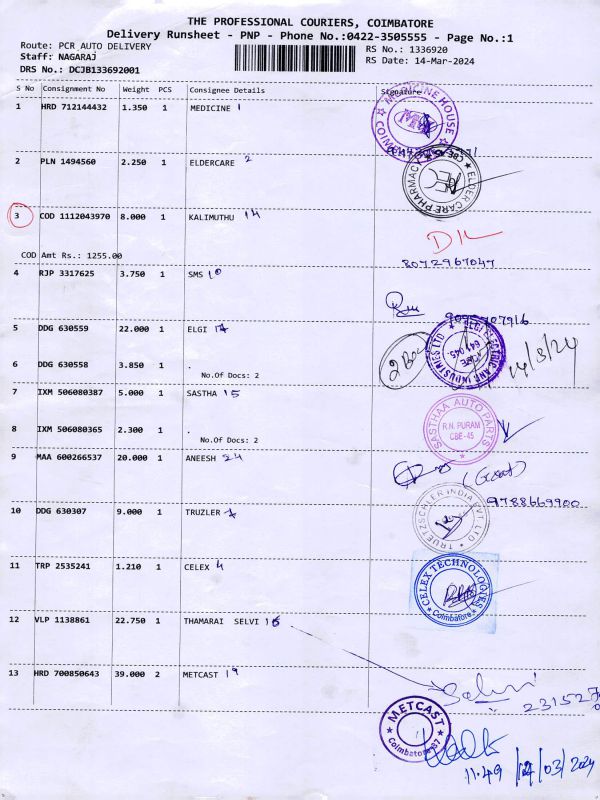 THE PROFESSIONAL COURIERS, COIMBATORE
Delivery Runsheet - PNP - Phone No.:0422-3505555 - Page No.:1
Route: PCR AUTO DELIVERY RS No.: 1336920
Staff: NAGARAJ RS Date: 14-Mar-2024
DRS No.: DCJB133692001
S No Consignment No Weight PCS Consignee Details Signature
1 HRD 712144432 1.350 1 MEDICINE 1
MEDICINE HOUSE
2 PLN 1494560 2.250 1 ELDERCARE 2
ELDER CARE PHARMACY
3 COD 1112043970 8.000 1 KALIMUTHU 14
COD Amt Rs.: 1255.00
8072967047
4 RJP 3317625 3.750 1 SMS 10
5 DDG 630559 22.000 1 ELGI
ELGI ELECTRIC AND INDUSTRIES LTD
14/3/24
6 DDG 630558 3.850 1 .
No.Of Docs: 2
7 IXM 506080387 5.000 1 SASTHA 15
SASTHAA AUTO PARTS
R.N. PURAM
CBE-45
8 IXM 506080365 2.300 1 .
No.Of Docs: 2
9 MAA 600266537 20.000 1 ANEESH 24
9788669900
10 DDG 630307 9.000 1 TRUZLER
TRUETZSCHLER INDIA PVT. LTD
11 TRP 2535241 1.210 1 CELEX 4
CELEX TECHNOLOGIES
Coimbatore
12 VLP 1138861 22.750 1 THAMARAI SELVI 16
13 HRD 700850643 39.000 2 METCAST 19
METCAST
Coimbatore
11.49 14/03/2024